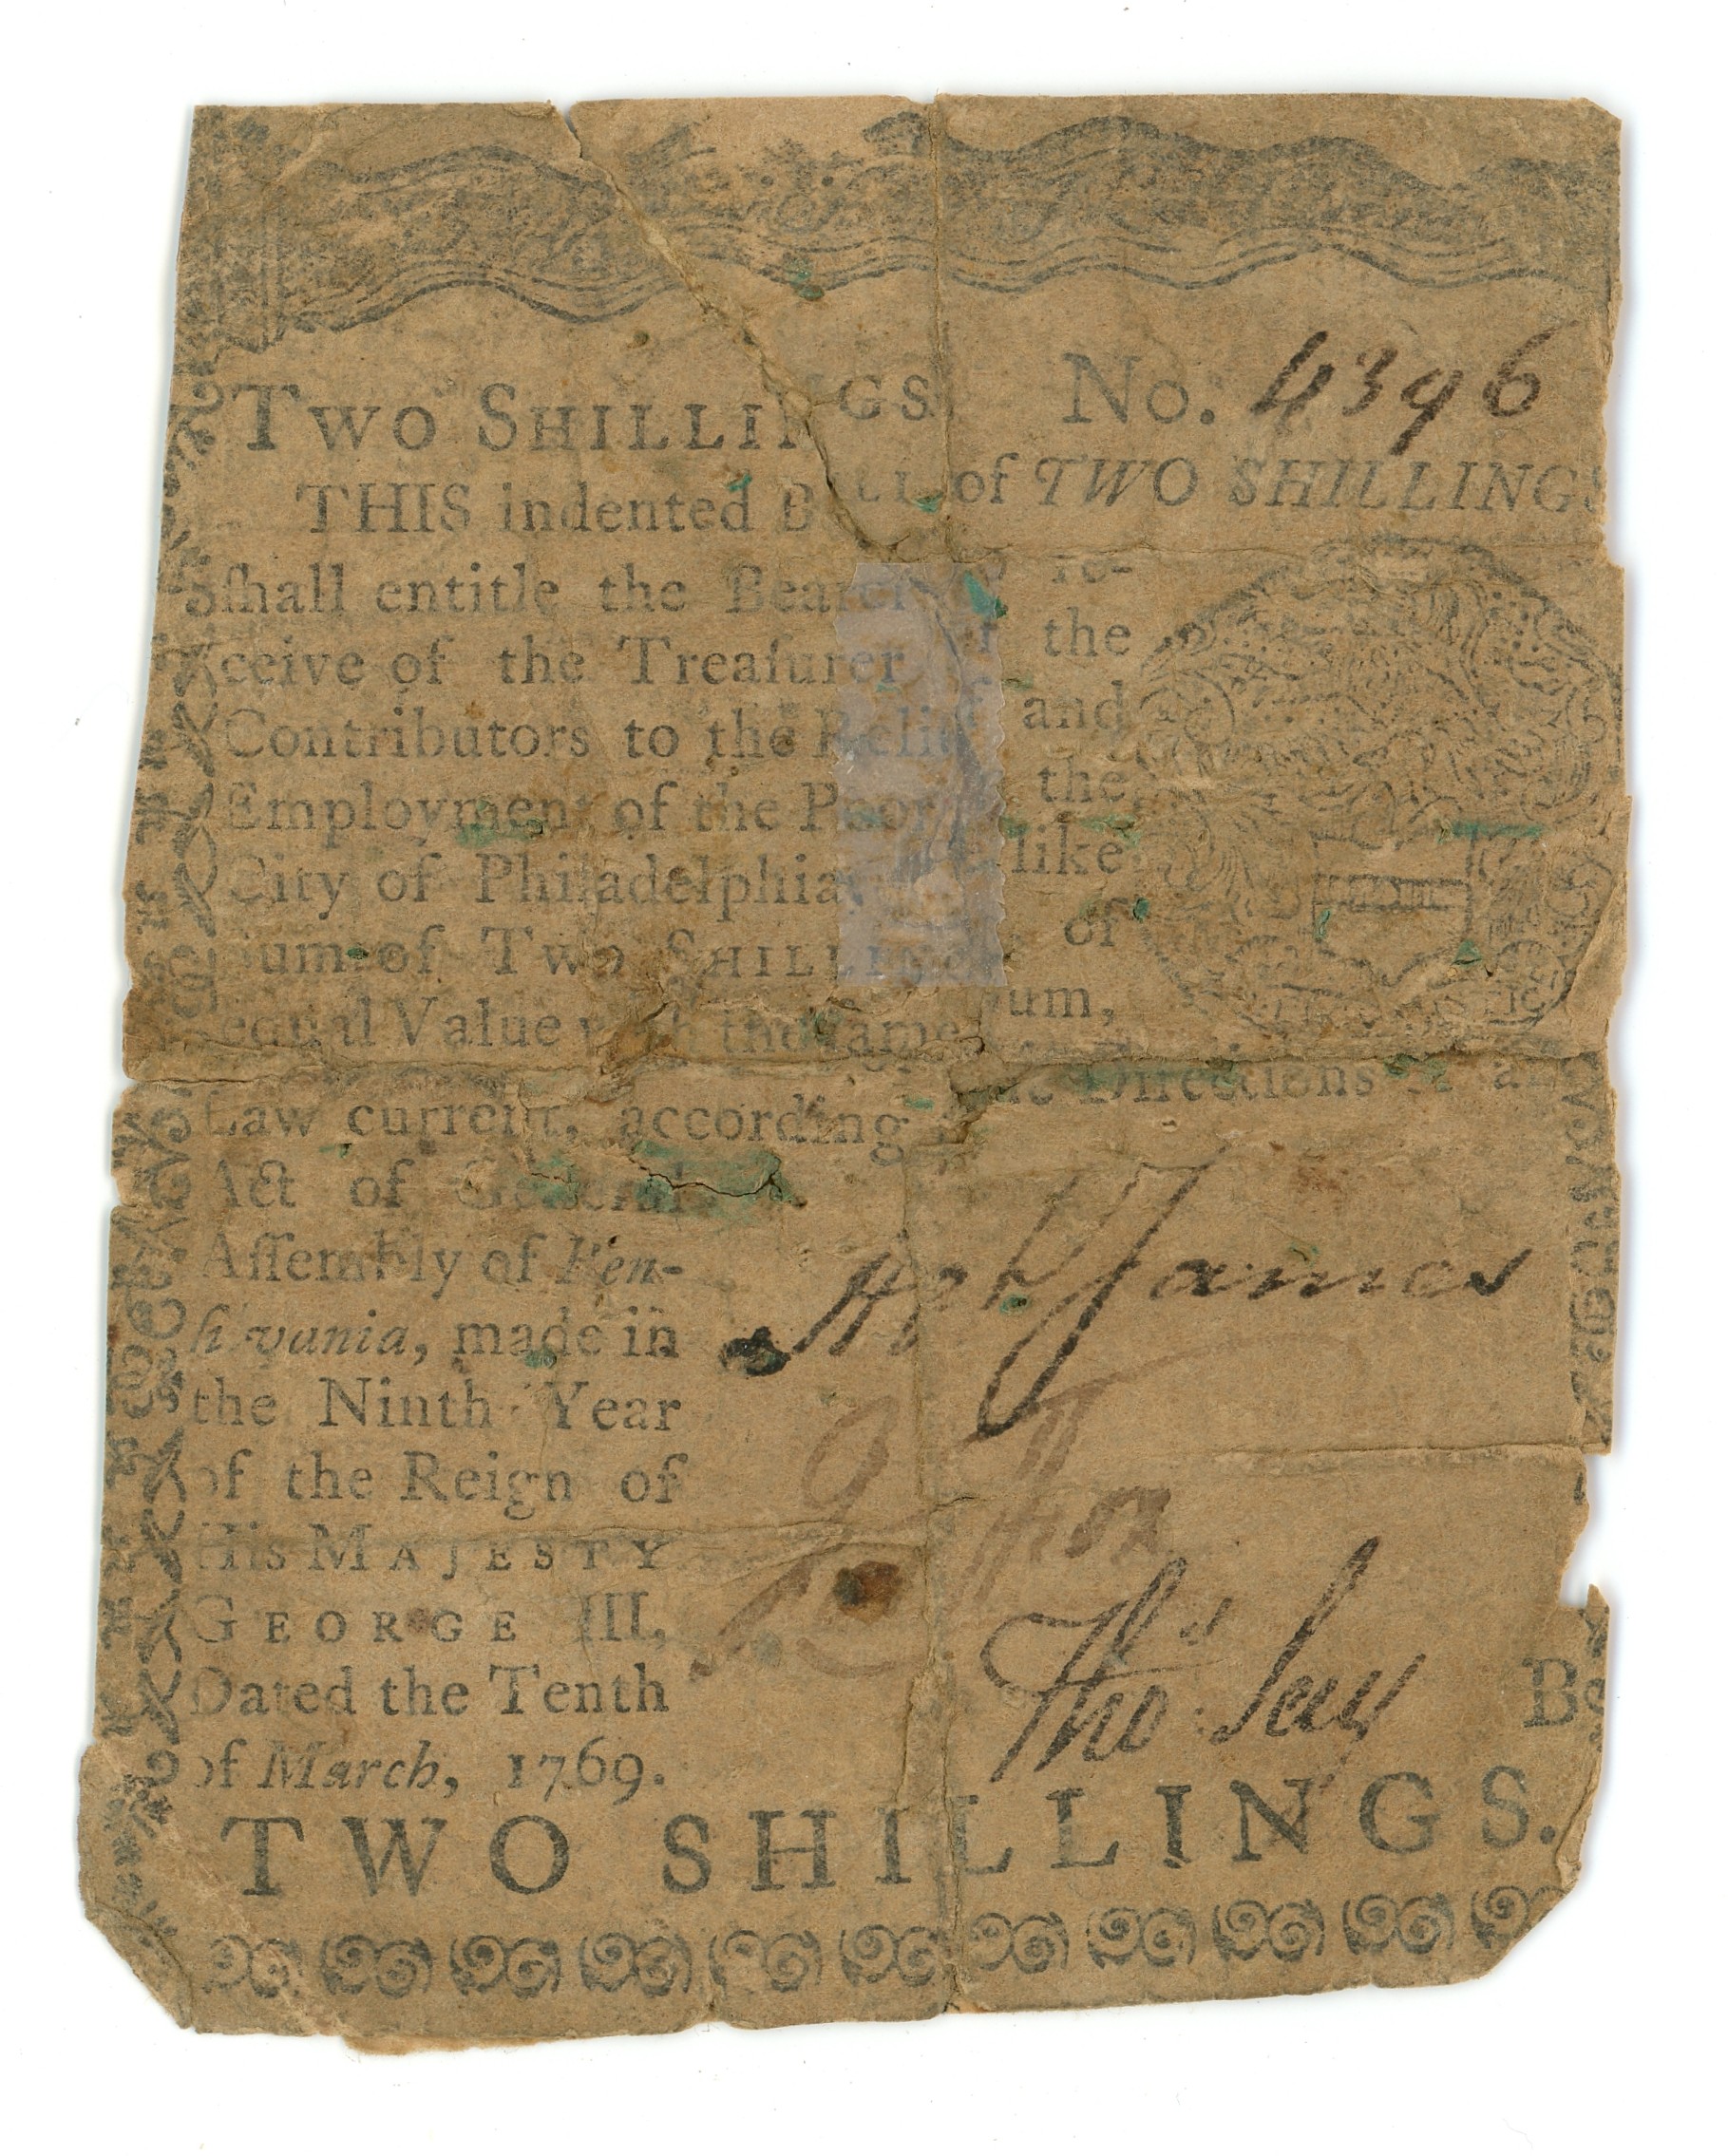 TWO SHILLINGS No. 4396
THIS indented BILL of TWO SHILLINGS
ſhall entitle the Bearer to re-
ceive of the Treaſurer of the
Contributors to the Relief and
Employment of the Poor the
City of Philadelphia, like
Sum of TWO SHILLINGS of
equal Value with the ſame Sum,
Law current, according the Directions an
Act of General
Aſſembly of Pen-
ſilvania, made in
the Ninth Year
of the Reign of
His MAJESTY
GEORGE III,
Dated the Tenth
of March, 1769.
Abel James
Jos Fox
Thos Say
B
TWO SHILLINGS.